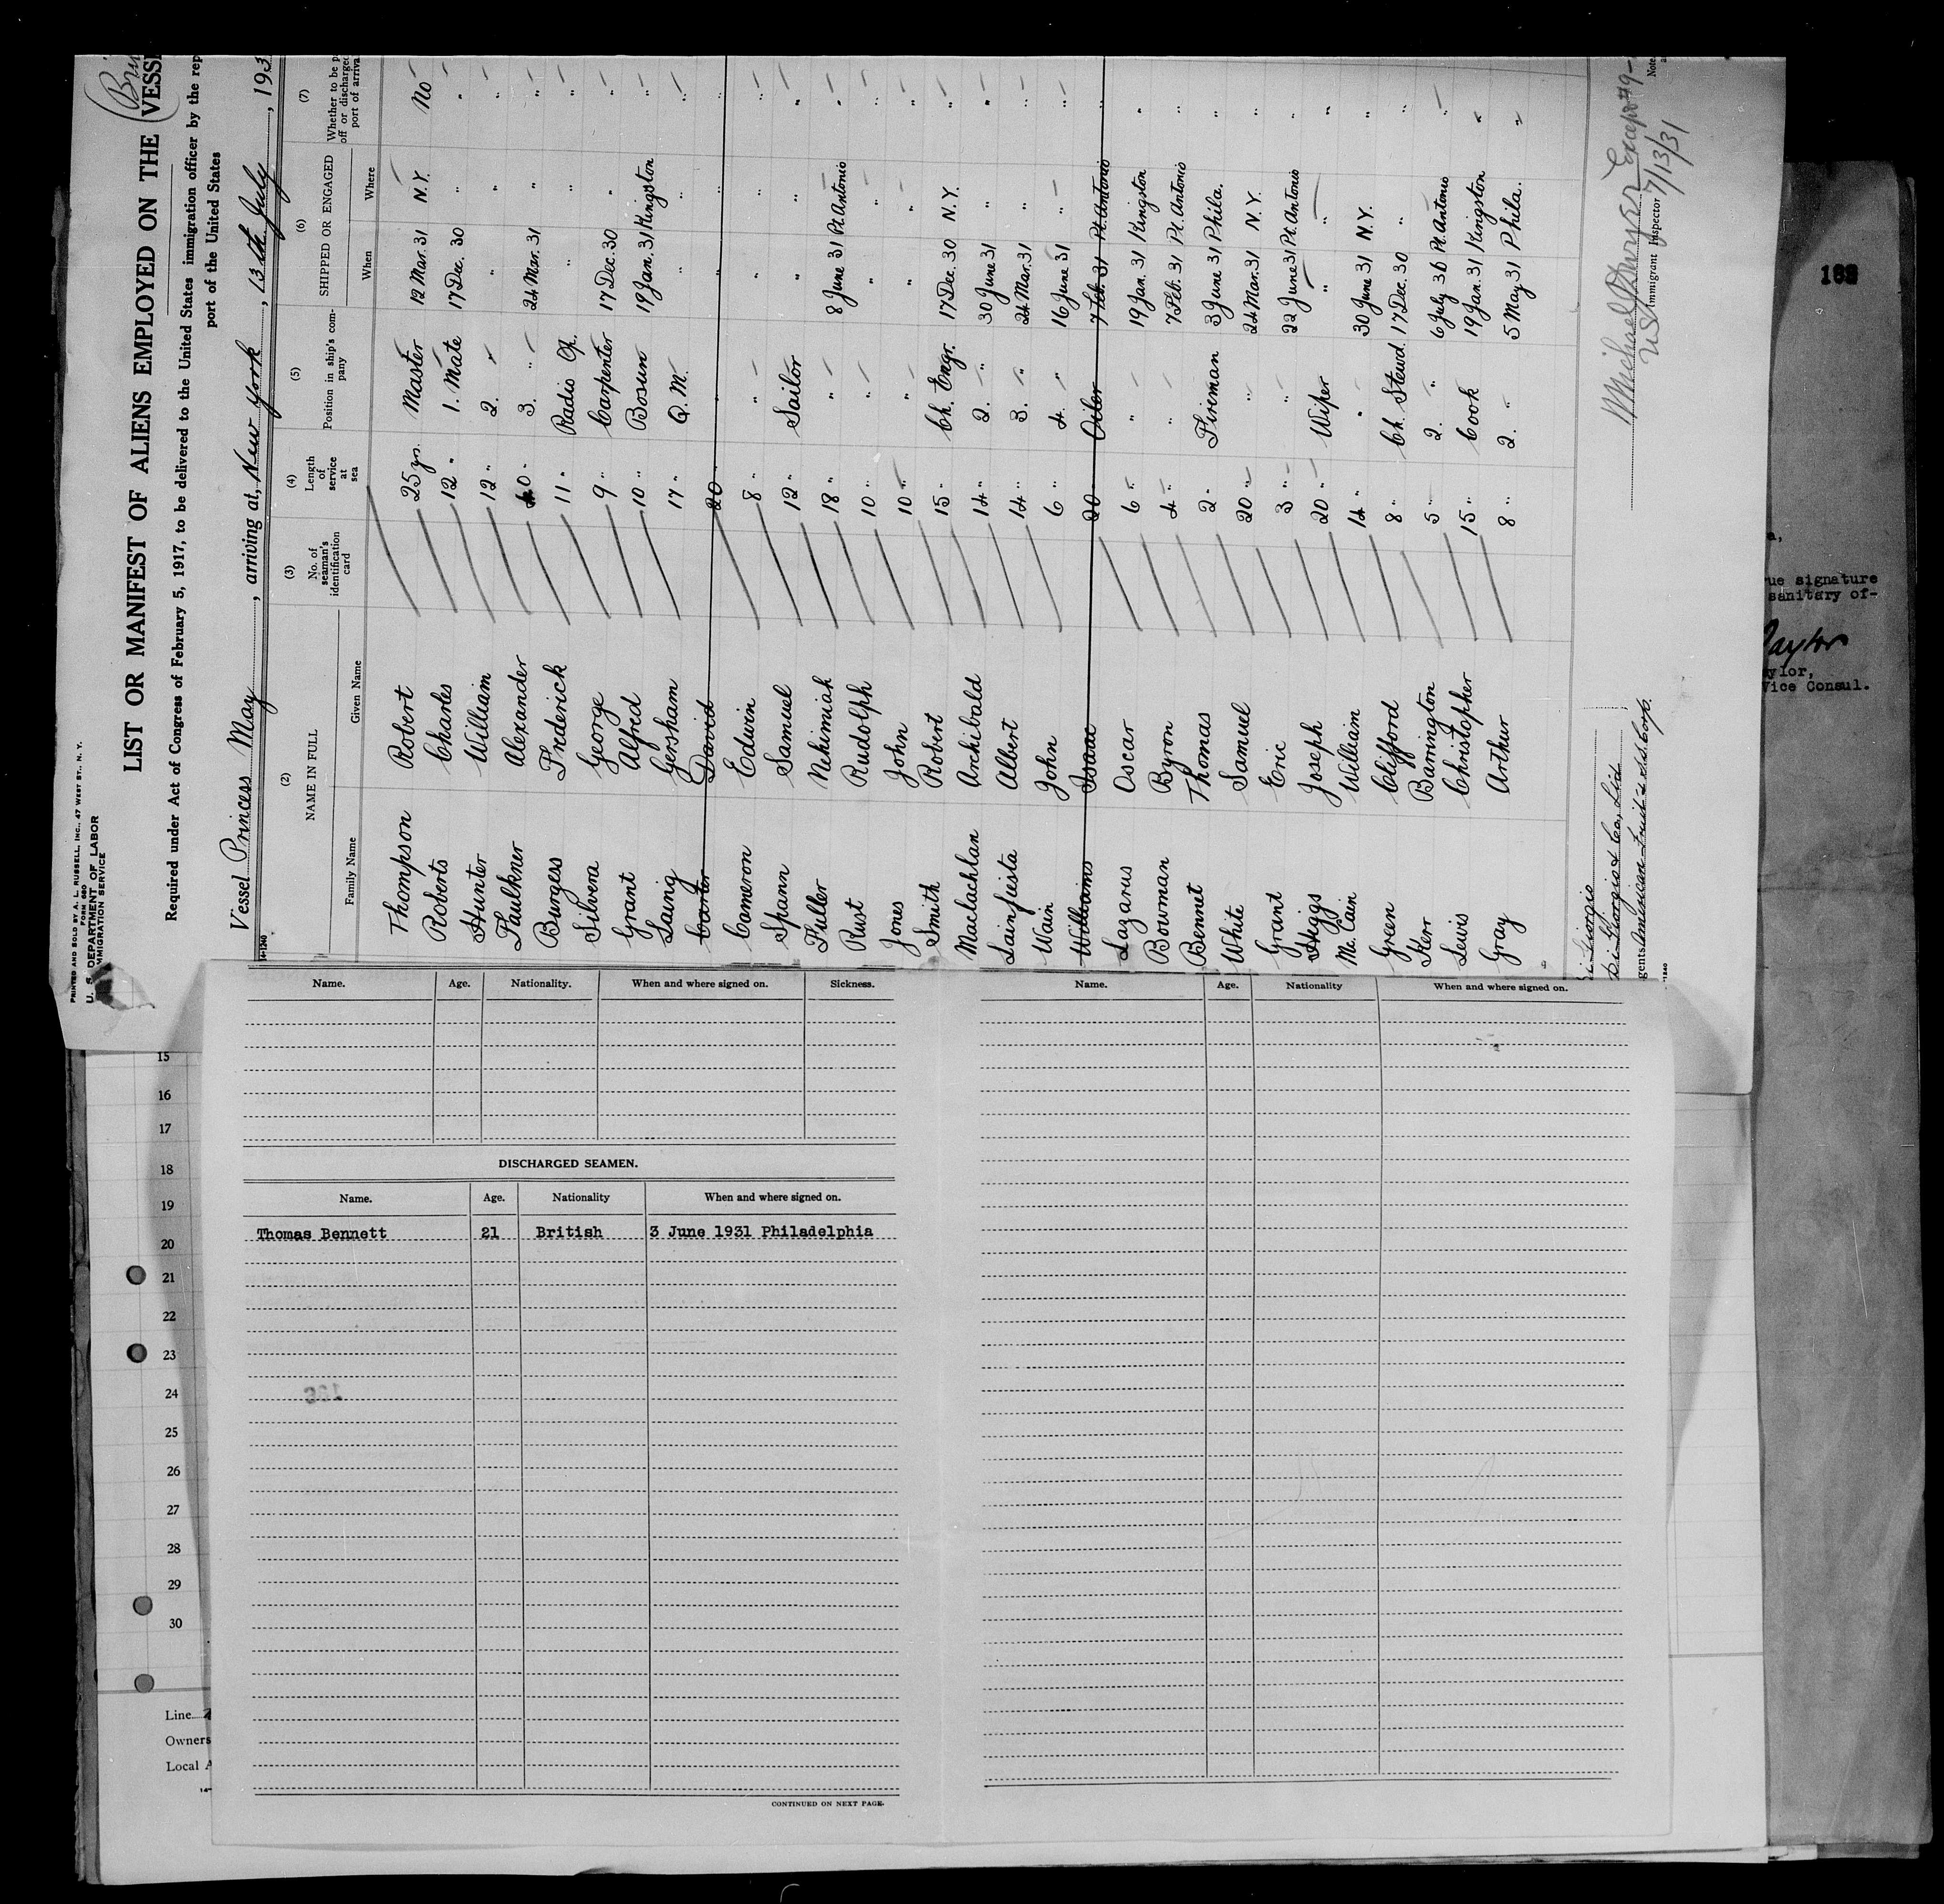 PRINTED AND SOLD BY A. L. RUSSELL, INC., 47 WEST ST., N. Y.
FORM 680
U. S. DEPARTMENT OF LABOR
IMMIGRATION SERVICE
LIST OR MANIFEST OF ALIENS EMPLOYED ON THE VESSE
Required under Act of Congress of February 5, 1917, to be delivered to the United States immigration officer by the rep
port of the United States
Vessel Princess May, arriving at, New York, 13th July, 193
(2) (3) (4) (5) (6) (7)
NAME IN FULL No. of seaman's identification card Length of service at sea Position in ship's company SHIPPED OR ENGAGED Whether to be p
off or discharged
port of arriva
Family Name Given Name When Where
Thompson Robert 25 yrs. Master 12 Mar. 31 N.Y. No
Roberts Charles 12 " 1. Mate 17 Dec. 30 " "
Hunter William 12 " 2. " " " "
Faulkner Alexander 3. " 24 Mar. 31 " "
Burgess Frederick 11 " Radio Op. " " "
Silvera George 9 " Carpenter 17 Dec. 30 " "
Grant Alfred 10 " Bosun 19 Jan. 31 Kingston "
Laing Gersham 17 " Q.M. " " "
Carter David 20 " " " " "
Cameron Edwin 8 " " " " "
Spann Samuel 12 " Sailor " " "
Fuller Nehimiah 18 " " 8 June 31 Pt. Antonio "
Rust Rudolph 10 " " " " "
Jones John 10 " " " " "
Smith Robert 15 " Ch. Engr. 17 Dec. 30 N.Y. "
Maclachlan Archibald 14 " 2. " 30 June 31 " "
Sainfusta Albert 14 " 3. " 24 Mar. 31 " "
Wain John 6 " 4. " 16 June 31 " "
Williams Isaac 20 " Oiler 7 Feb. 31 Pt. Antonio "
Lazarus Oscar 6 " " 19 Jan. 31 Kingston "
Bowman Byron 4 " " 7 Feb. 31 Pt. Antonio "
Bennet Thomas 2 " Fireman 3 June 31 Phila. "
White Samuel 20 " " 24 Mar. 31 N.Y. "
Grant Eric 3 " " 22 June 31 Pt. Antonio "
Higgs Joseph 20 " Wiper " " "
Mc. Cain William 14 " " 30 June 31 N.Y. "
Green Clifford 8 " Ch. Stewd. 17 Dec. 30 " "
Kerr Barrington 5 " 2. " 6 July 30 Pt. Antonio "
Lewis Christopher 15 " Cook 19 Jan. 31 Kingston "
Gray Arthur 8 " 2. " 5 May 31 Phila. "
Di Giorgio
Di Giorgio & Co., Ltd
gents American Fruit & S.S. Corp.
Michael Dwyer Except #9-
US Immigrant Inspector 7/13/31
Note
Name. Age. Nationality. When and where signed on. Sickness.
DISCHARGED SEAMEN.
Name. Age. Nationality When and where signed on.
Thomas Bennett 21 British 3 June 1931 Philadelphia
CONTINUED ON NEXT PAGE.
Name. Age. Nationality When and where signed on.
15
16
17
18
19
20
21
22
23
24
25
26
27
28
29
30
Line
Owners
Local A
a,
rue signature
sanitary of-
Taylor
aylor,
Vice Consul.